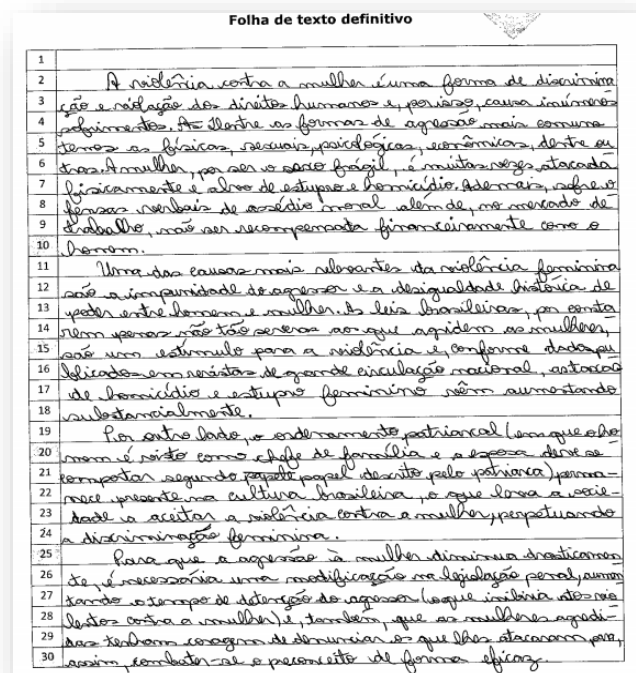 Folha de texto definitivo
1
2 A violência contra a mulher é uma forma de discrimina
3 ção e violação dos direitos humanos e, por isso, causa inúmeros
4 sofrimentos. As dentre as formas de agressão mais comuns
5 temos as físicas, sexuais, psicológicas, econômicas, dentre ou
6 tras. A mulher, por ser o sexo frágil, é muitas vezes atacada
7 fisicamente e alvo de estupro e homicídio. Ademais, sofre o
8 fensas verbais de assédio moral além de, no mercado de
9 trabalho, não ser recompensada financeiramente como o
10 homem.
11 Uma das causas mais relevantes da violência feminina
12 são a impunidade do agressor e a desigualdade histórica de
13 poder entre homem e mulher. As leis brasileiras, por conta
14 rem penas não tão severas aos que agridem as mulheres,
15 são um estímulo para a violência e, conforme dados pu
16 blicados em revistas de grande circulação nacional, as taxas
17 de homicídio e estupro feminino vêm aumentando
18 substancialmente.
19 Por outro lado, o ordenamento patriarcal (em que o ho
20 mem é visto como chefe de família e a esposa deve se
21 comportar segundo papele papel descrito pelo patriarca) perma-
22 nece presente na cultura brasileira, o que leva a socie-
23 dade a aceitar a violência contra a mulher, perpetuando
24 a discriminação feminina.
25 Para que a agressão à mulher diminua drasticamen
26 te, é necessária uma modificação na legislação penal, aumen
27 tando o tempo de detenção do agressor (o que inibiria atos vio
28 lentos contra a mulher) e, também, que as mulheres agredi-
29 das tenham coragem de denunciar os que lhes atacaram para,
30 assim, combater-se o preconceito de forma eficaz.